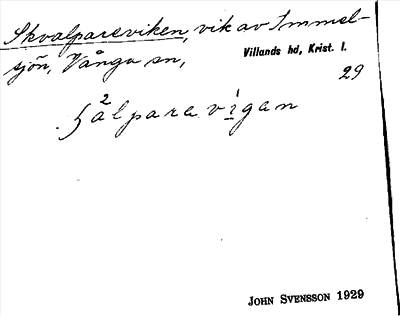 Skvalpareviken, vik av Immel-
sjön, Vånga sn,
Villands hd, Krist. l.
29
2
alpara vigan
John Svensson 1929